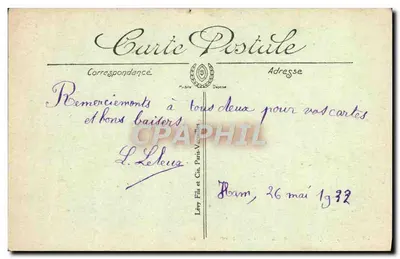 Carte Postale
Correspondance
Adresse
Remerciements à tous deux pour vos cartes
et bons baisers
PHILATELIE
Ham, 26 mai 19
Lévy Fils et Cie, Paris